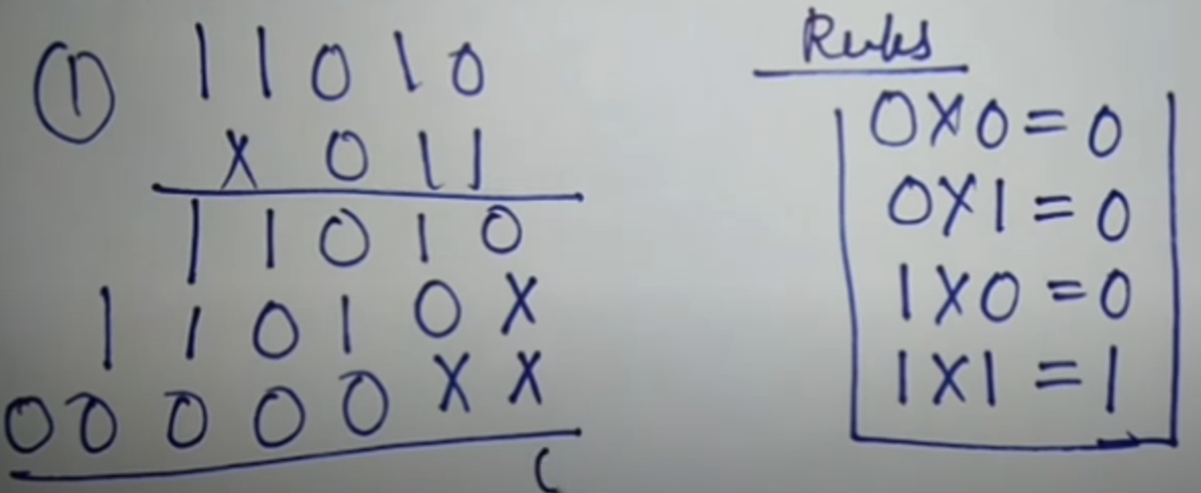 ① 11010
X 011
11010
11010X
00000XX
Rules
0X0=0
0X1=0
1X0=0
1X1=1